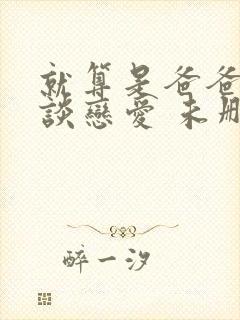 就算是爸爸
談戀愛 未刪
醉一汐